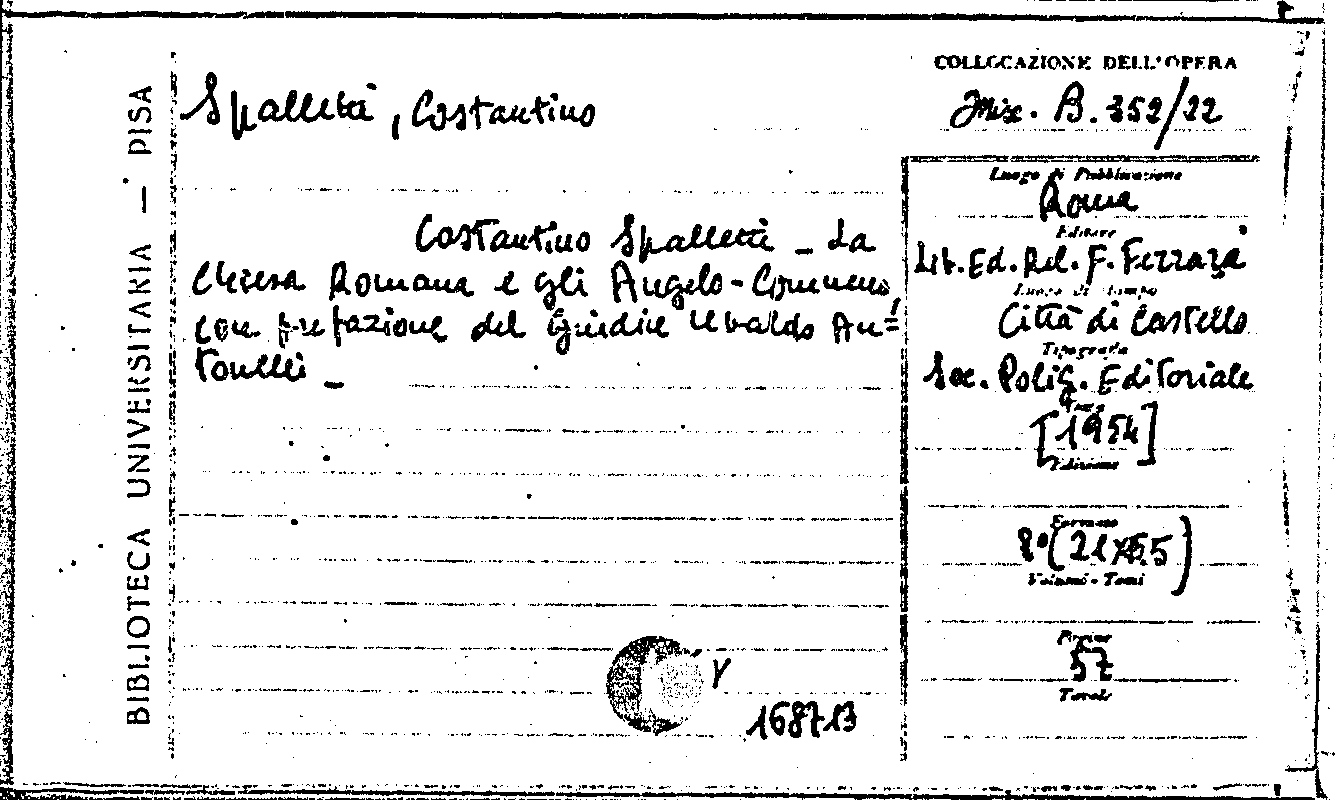 BIBLIOTECA UNIVERSITARIA — PISA
Spalletti, Costantino
Costantino Spalletti – La
Chiesa Romana e gli Angelo-Comneno,
con prefazione del Giudice Ubaldo An=
tonelli –
168713
COLLOCAZIONE DELL'OPERA
Misc. B. 352/22
Luogo di Pubblicazione
Roma
Editore
Lib. Ed. Rel. F. Ferrara
Luogo di stampa
Città di Castello
Tipografia
Soc. Polig. Editoriale
Anno
[1954]
Edizione
Formato
8° (21x15.5)
Volumi - Tomi
Pagine
57
Tavole